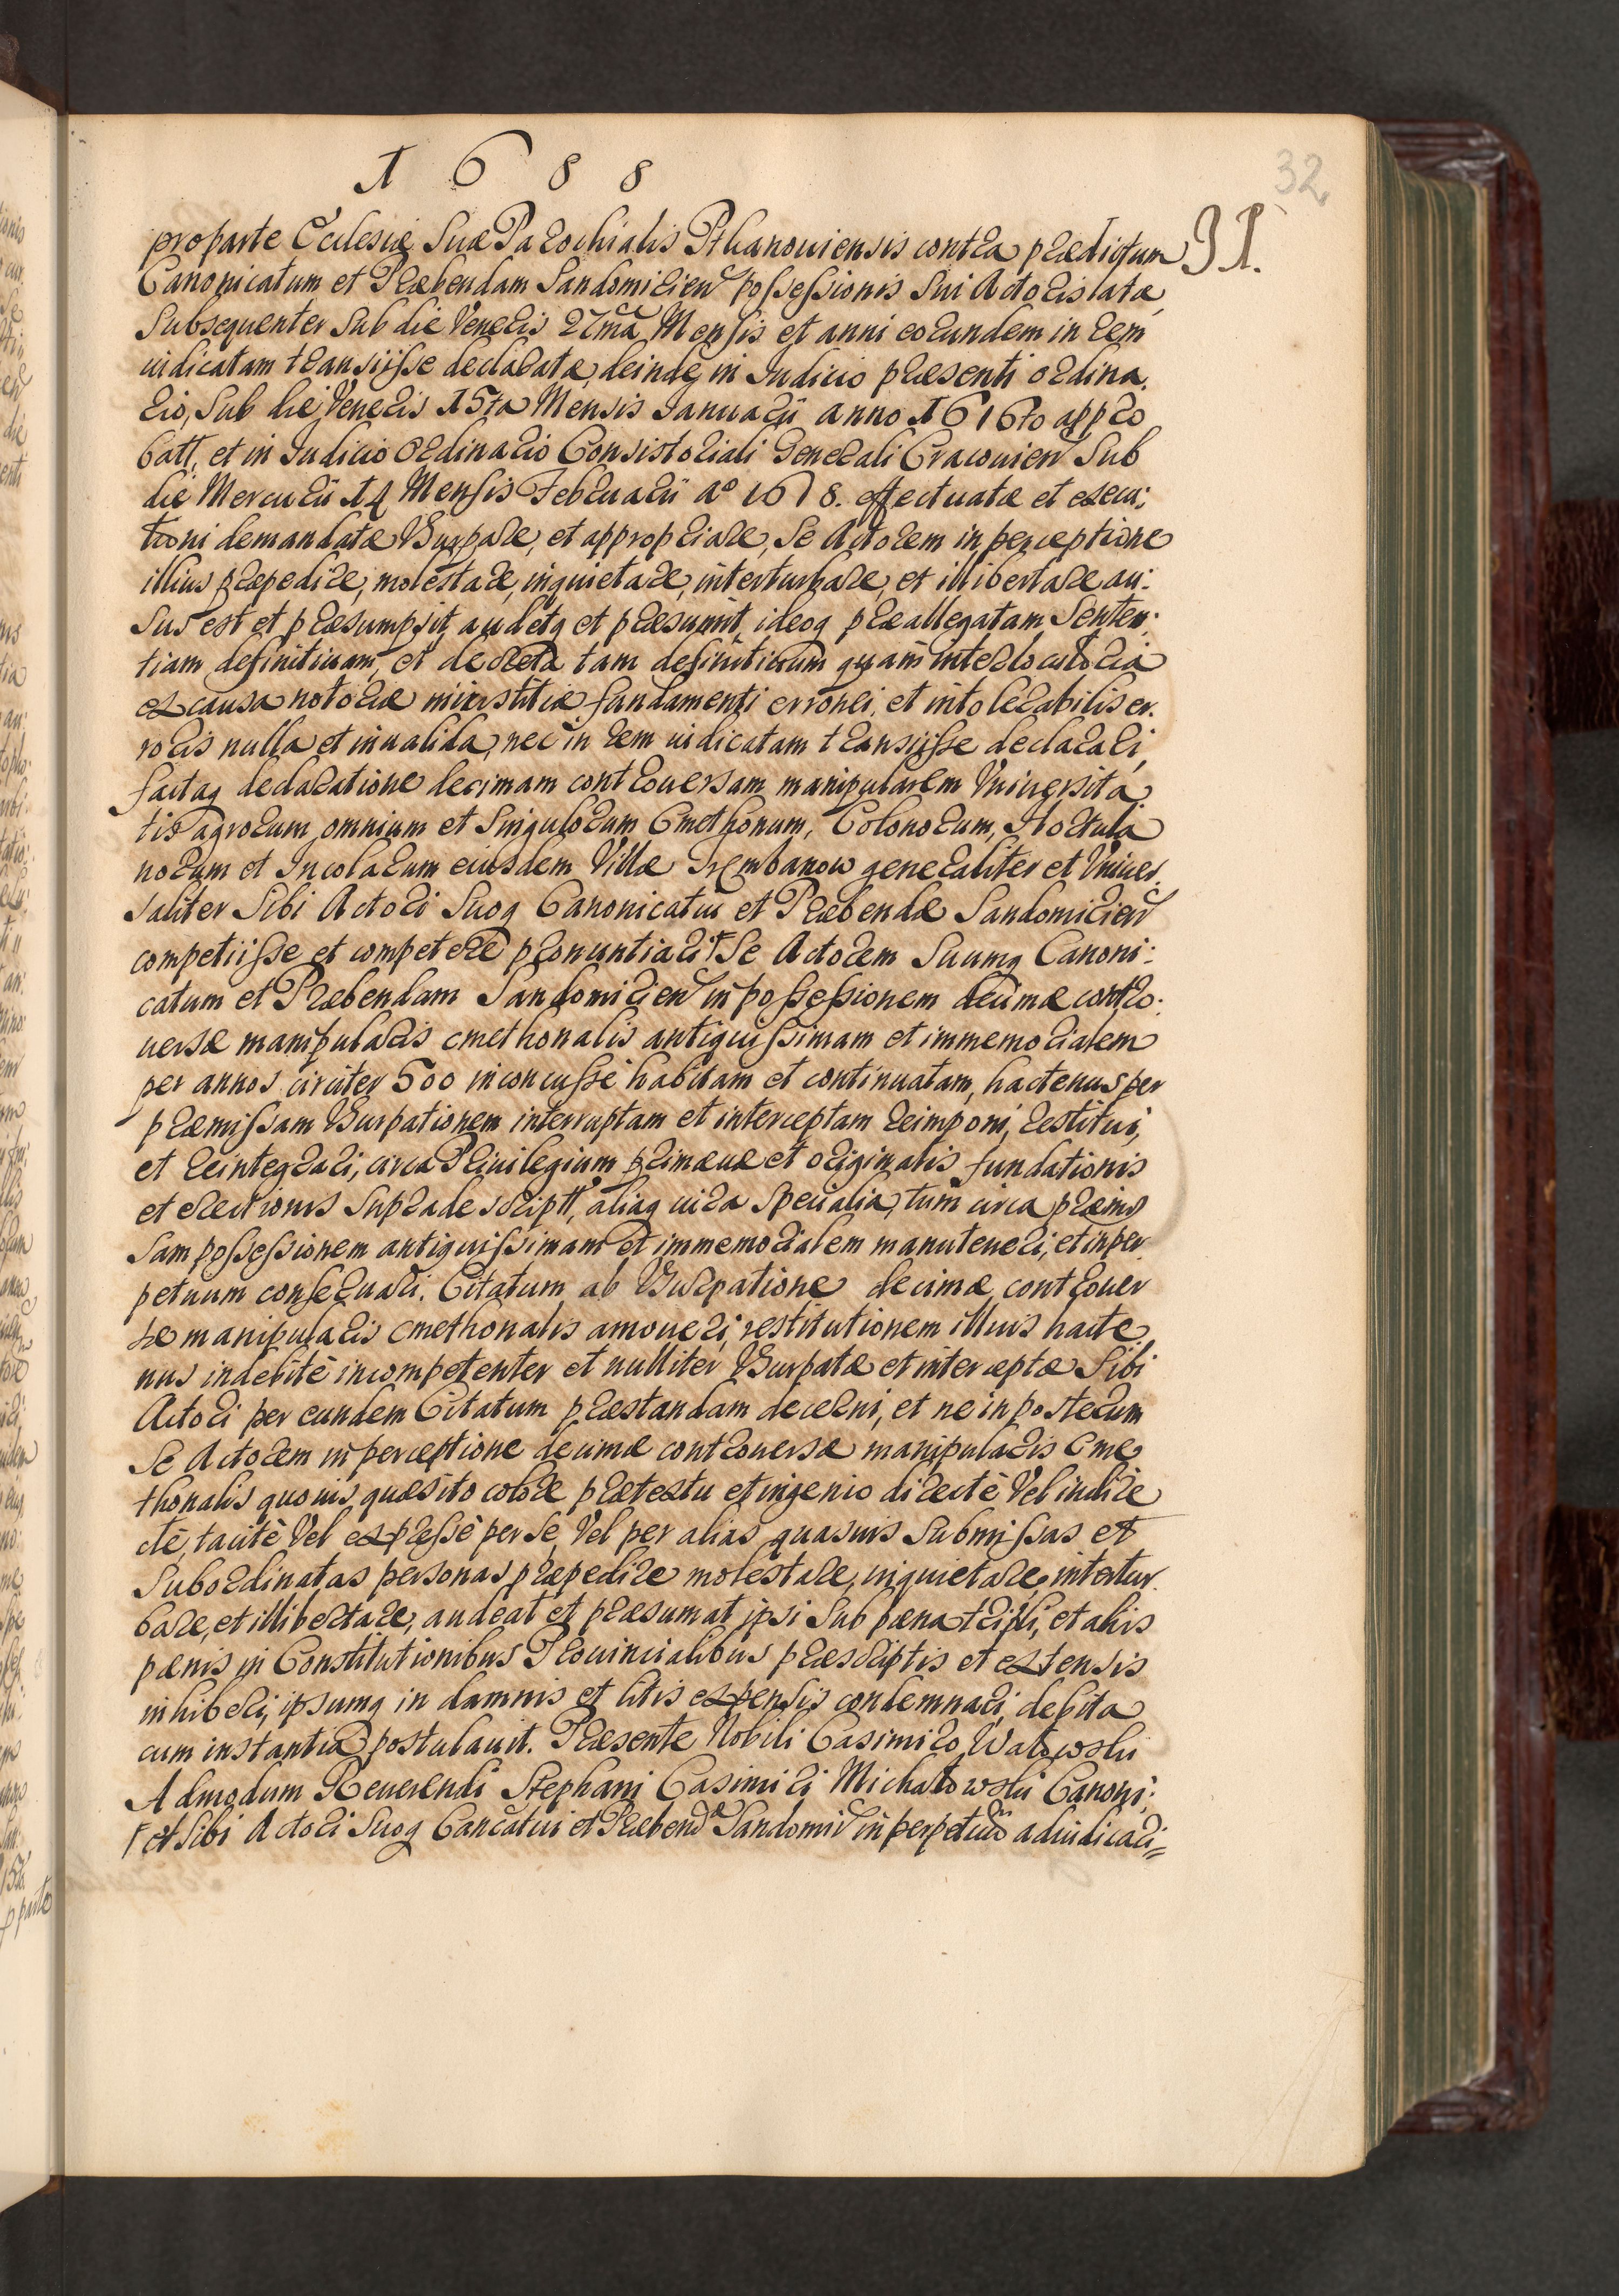 1688
32
31.
pro parte Ecclesiæ Suæ Parochialis Ptkanouiensis contra prædictum
Canonicatum et Præbendam Sandomirien possessionis Sui Actoris latæ,
Subsequenter Sub die Veneris 27ma Mensis et anni eorundem in rem
iudicatam transiisse declaratæ, deinde in Iudicio præsenti ordina,
rio, Sub die Veneris 15ta Mensis Ianuarii anno 1616to appro
batt, et in Iudicio Ordinario Consistoriali Generali Cracouien Sub
die Mercurii 14 Mensis Februarii Ao 1618. effectuatæ et execu:
tioni demandatæ Vsurpare, et appropriare, Se Actorem in perceptione
illius præpedire, molestare, inquietare, interturbare, et illibertare au:
sus est et præsumpsit, audetq et præsumit, ideoq præallegatam Senten:
tiam definitiuam, et decreta tam definitiuum quam interlocutoria
ex causa notoriæ iniustitiæ fundamenti erronei, et intolerabilis er:
roris nulla et inualida, nec in rem iudicatam transiisse declarari,
factaq declaratione decimam controuersam manipularem Vniuersita
tis agrorum omnium et Singulorum Cmethonum, Colonorum, Hortula
norum et Incolarum eiusdem Villæ Trembanow generaliter et Vniuer,
saliter Sibi Actori Suoq Canonicatui et Præbendæ Sandomirien
competiisse et competere pronuntiari Ⲅ Se Actorem Suumq Canoni:
catum et Præbendam Sandomirien in possessionem decimæ contro:
uersæ manipularis cmethonalis antiquissimam et immemorialem
per annos circiter 500 inconcussè habitam et continuatam, hactenus per
præmissam Vsurpationem interruptam et interceptam reimponi, restitui,
et reintegrari, circa Priuilegium primæuæ et originalis fundationis
et erectionis Supradescriptt, aliaq iura Specialia, tum circa præmis
sam possessionem antiquissimam et immemorialem manuteneri, et in per
petuum conseruari. Citatum ab Vsurpatione decimæ controuer
sæ manipularis cmethonalis amoueri, restitutionem illius hacte,
nus indebitè incompetenter et nulliter Vsurpatæ et interceptæ Sibi
Actori per eundem Citatum præstandam decerni, et ne in posterum
Se Actorem in perceptione decimæ controuersæ manipularis Cme
thonalis quouis quæsito colore prætextu et ingenio directè Vel indire
ctè, tacitè Vel expressè per Se, Vel per alias quasuis Submissas et
Subordinatas personas præpedire molestare, inquietare, intertur
bare, et illibertare, audeat et præsumat ipsi Sub pæna tripli, et aliis
pænis in Constitutionibus Prouincialibus præscriptis et extensis
inhiberi, ipsumq in damnis et litis expensis condemnari, debita
cum instantia postulauit. Præsente Nobili Casimiro Watowski
Admodum Reuerendi Stephani Casimiri Michałowski Canoni:
Ⲅ et Sibi Actori Suoq Cancatui et Præbendæ Sandomir in perpetuum adiudicari